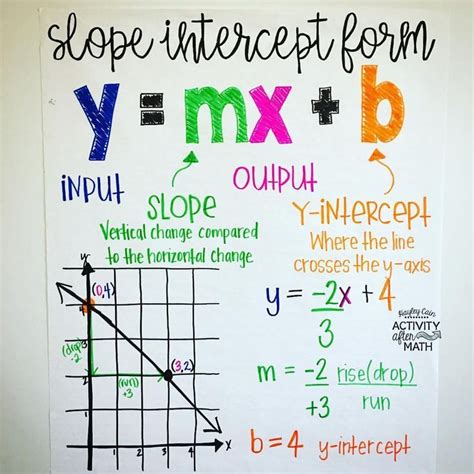 slope intercept form
y = mx + b
INPUT
OUTPUT
SLOPE
Vertical change compared
to the horizontal change
Y-INTERCEPT
Where the line
crosses the y-axis
y
(0,4)
4
3
(drop)
-2
2
(run)
+3
(3,2)
x
y = -2x + 4
3
Kayley Cain
ACTIVITY
after
MATH
m = -2 rise(drop)
+3 run
b = 4 y-intercept